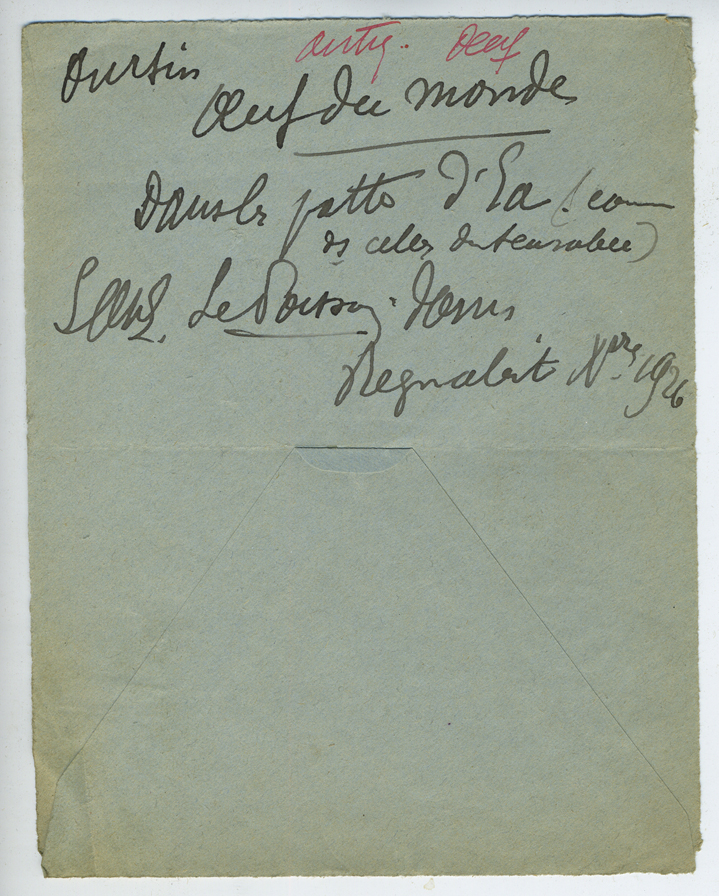 Oursin
antiq. Oeuf
Œuf du monde
Dans les pattes d'Ea (comme
ds celles du scarabée)
Le Poisson
Regnabit Xbre 1926